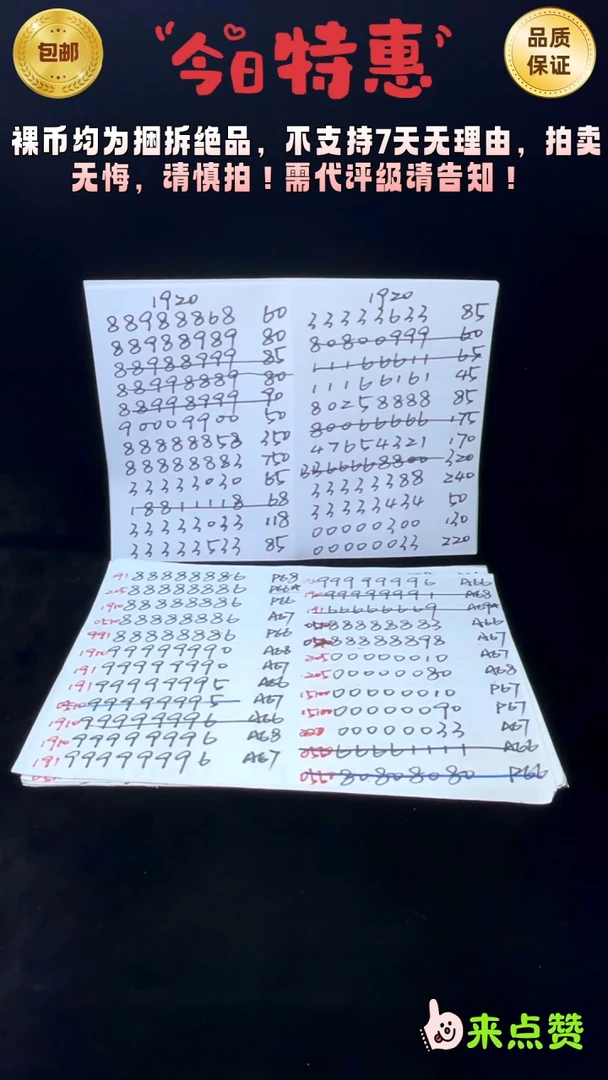 包邮
今日特惠
品质
保证
裸币均为捆拆绝品，不支持7天无理由，拍卖
无悔，请慎拍！需代评级请告知！
1920
88988868 60
88988989 80
88988999 85
88998889 80
88998999 90
90009900 50
88888858 350
88888883 750
33333030 65
18811118 68
33333033 118
33333533 85
1920
33333633 85
80800999 60
11166611 65
11166161 45
80258888 85
80066666 175
47654321 170
320
33333388 240
33333434 50
00000300 130
00000033 220
191 88888886 P68
205 88888886
1910 88888886 P66
0510 88888886 A67
991 88888886 P66
1910 99999990 A68
191 99999990 A67
191 99999995 A66
0510 99999995 A67
1910 99999996 A66
1910 99999996 A68
191 99999996 A67
99999996 A66
99999991 A68
191 66666669
88888883 A66
88888898 A67
205 00000010 A67
205 00000080 A68
1510 00000010 P67
1510 00000090 P67
00000033 A67
66661111 A66
80808080 P66
来点赞